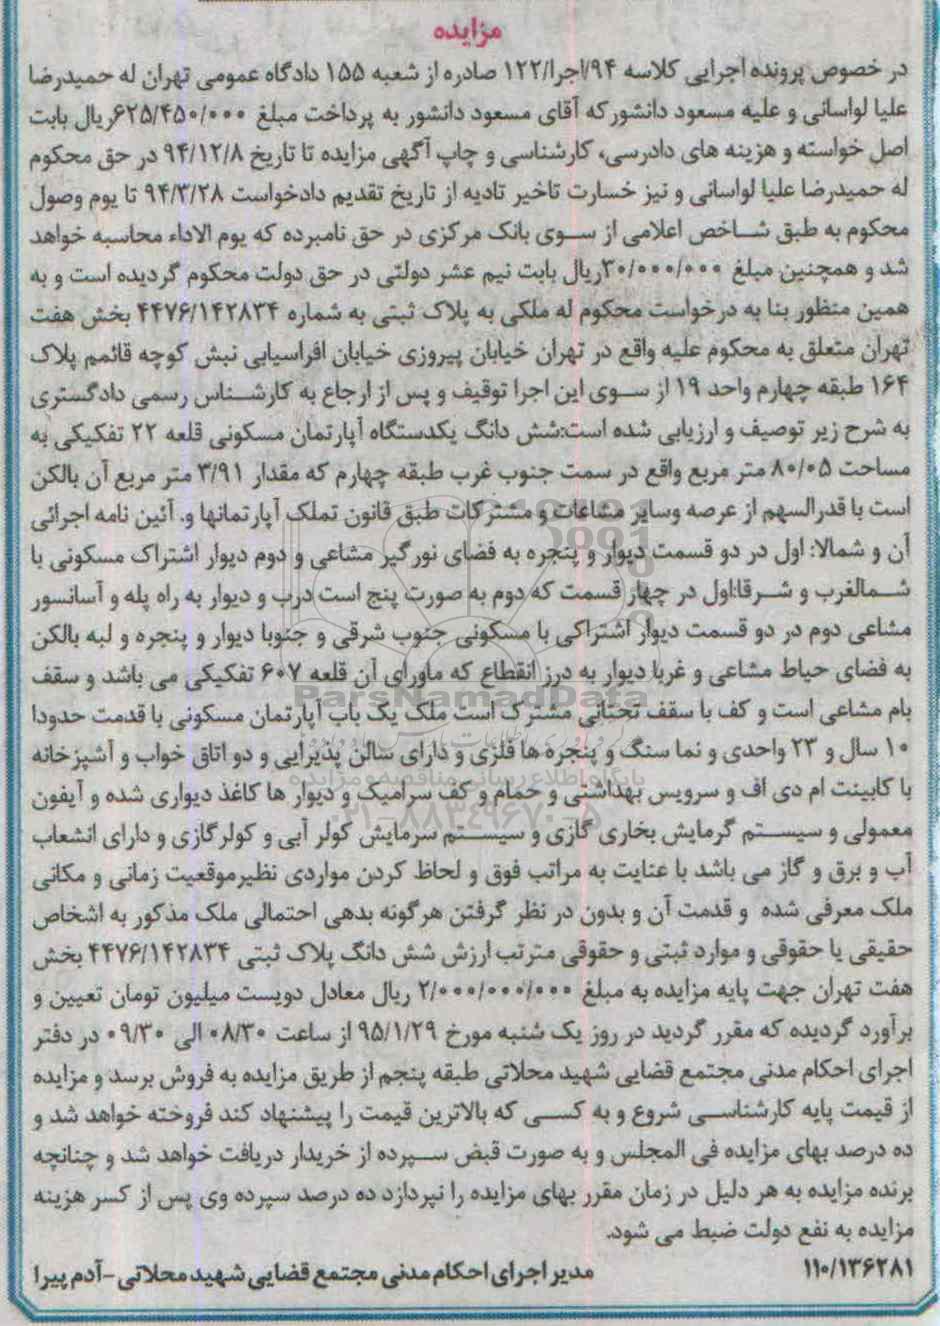 مزایده
در خصوص پرونده اجرایی کلاسه ۹۴/اجرا/۱۲۲ صادره از شعبه ۱۵۵ دادگاه عمومی تهران له حمیدرضا
علیا لواسانی و علیه مسعود دانشورکه آقای مسعود دانشور به پرداخت مبلغ ۶۲۵/۴۵۰/۰۰۰ریال بابت
اصل خواسته و هزینه های دادرسی، کارشناسی و چاپ آگهی مزایده تا تاریخ ۹۴/۱۲/۸ در حق محکوم
له حمیدرضا علیا لواسانی و نیز خسارت تاخیر تادیه از تاریخ تقدیم دادخواست ۹۴/۳/۲۸ تا یوم وصول
محکوم به طبق شاخص اعلامی از سوی بانک مرکزی در حق نامبرده که یوم الاداء محاسبه خواهد
شد و همچنین مبلغ ۳۰/۰۰۰/۰۰۰ریال بابت نیم عشر دولتی در حق دولت محکوم گردیده است و به
همین منظور بنا به درخواست محکوم له ملکی به پلاک ثبتی به شماره ۴۴۷۶/۱۴۲۸۳۴ بخش هفت
تهران متعلق به محکوم علیه واقع در تهران خیابان پیروزی خیابان افراسیابی نبش کوچه قائمم پلاک
۱۶۴ طبقه چهارم واحد ۱۹ از سوی این اجرا توقیف و پس از ارجاع به کارشناس رسمی دادگستری
به شرح زیر توصیف و ارزیابی شده است:شش دانگ یکدستگاه آپارتمان مسکونی قلعه ۲۲ تفکیکی به
مساحت ۸۰/۰۵ متر مربع واقع در سمت جنوب غرب طبقه چهارم که مقدار ۳/۹۱ متر مربع آن بالکن
است با قدرالسهم از عرصه وسایر مشاعات و مشترکات طبق قانون تملک آپارتمانها و. آئین نامه اجرائی
آن و شمالا: اول در دو قسمت دیوار و پنجره به فضای نورگیر مشاعی و دوم دیوار اشتراک مسکونی با
شمالغرب و شرقا:اول در چهار قسمت که دوم به صورت پنج است درب و دیوار به راه پله و آسانسور
مشاعی دوم در دو قسمت دیوار اشتراکی با مسکونی جنوب شرقی و جنوبا دیوار و پنجره و لبه بالکن
به فضای حیاط مشاعی و غربا دیوار به درز انقطاع که ماورای آن قلعه ۶۰۷ تفکیکی می باشد و سقف
بام مشاعی است و کف با سقف تحتانی مشترک است ملک یک باب آپارتمان مسکونی با قدمت حدودا
۱۰ سال و ۲۳ واحدی و نما سنگ و پنجره ها فلزی و دارای سالن پذیرایی و دو اتاق خواب و آشپزخانه
با کابینت ام دی اف و سرویس بهداشتی و حمام و کف سرامیک و دیوار ها کاغذ دیواری شده و آیفون
معمولی و سیستم گرمایش بخاری گازی و سیستم سرمایش کولر آبی و کولرگازی و دارای انشعاب
آب و برق و گاز می باشد با عنایت به مراتب فوق و لحاظ کردن مواردی نظیرموقعیت زمانی و مکانی
ملک معرفی شده و قدمت آن و بدون در نظر گرفتن هرگونه بدهی احتمالی ملک مذکور به اشخاص
حقیقی یا حقوقی و موارد ثبتی و حقوقی مترتب ارزش شش دانگ پلاک ثبتی ۴۴۷۶/۱۴۲۸۳۴ بخش
هفت تهران جهت پایه مزایده به مبلغ ۲/۰۰۰/۰۰۰/۰۰۰ ریال معادل دویست میلیون تومان تعیین و
برآورد گردیده که مقرر گردید در روز یک شنبه مورخ ۹۵/۱/۲۹ از ساعت ۰۸/۳۰ الی ۰۹/۳۰ در دفتر
اجرای احکام مدنی مجتمع قضایی شهید محلاتی طبقه پنجم از طریق مزایده به فروش برسد و مزایده
از قیمت پایه کارشناسی شروع و به کسی که بالاترین قیمت را پیشنهاد کند فروخته خواهد شد و
ده درصد بهای مزایده فی المجلس و به صورت قبض سپرده از خریدار دریافت خواهد شد و چنانچه
برنده مزایده به هر دلیل در زمان مقرر بهای مزایده را نپردازد ده درصد سپرده وی پس از کسر هزینه
مزایده به نفع دولت ضبط می شود.
۱۱۰/۱۳۶۲۸۱ مدیر اجرای احکام مدنی مجتمع قضایی شهید محلاتی -آدم پیرا
ParsNamadData
پایگاه اطلاع رسانی مناقصه و مزایده
۰۲۱-۸۸۳۴۹۶۷۰-۵